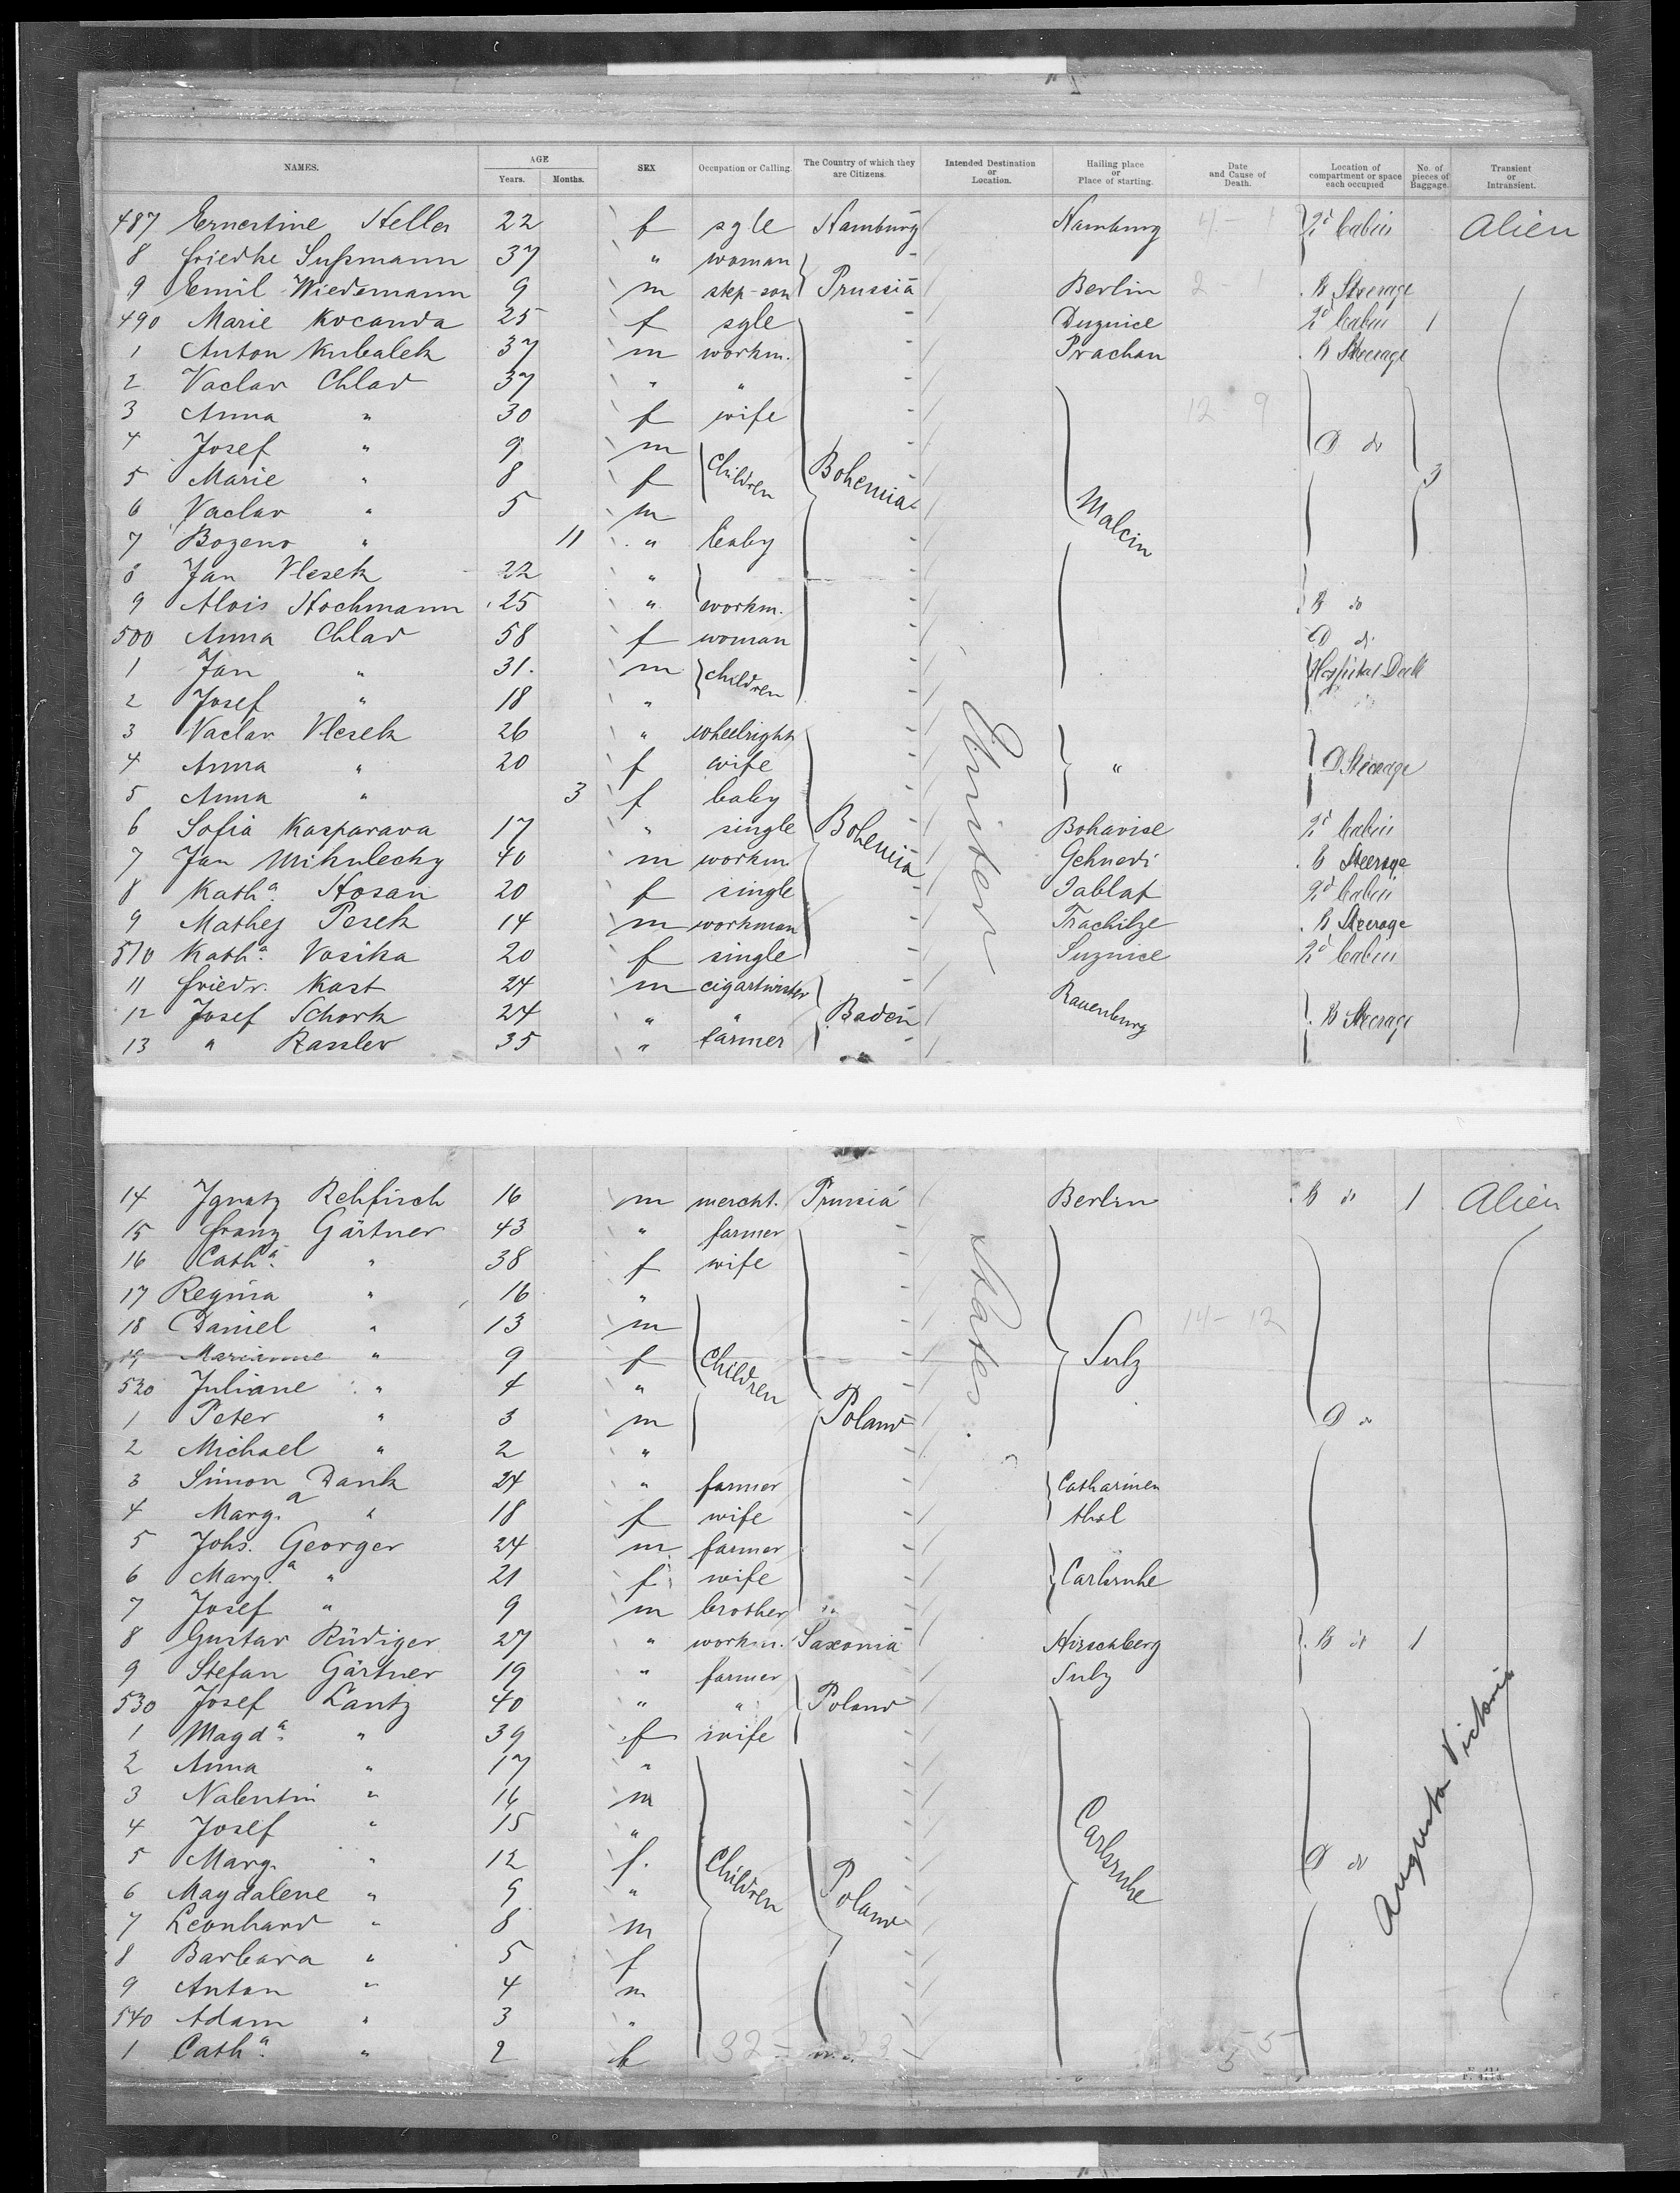 NAMES. AGE Years. Months. SEX Occupation or Calling. The Country of which they are Citizens. Intended Destination or Location. Hailing place or Place of starting. Date and Cause of Death. Location of compartment or space each occupied No. of pieces of Baggage. Transient or Intransient.
487 Ernestine Heller 22 f sgle Hamburg Hamburg 2d Cabin Alien
8 Friedke Sußmann 37 " woman
9 Emil Wiedemann 9 m step-son Prussia Berlin B Steerage
490 Marie Kocanda 25 f sgle Duznice 2d Cabin 1
1 Anton Kubalek 37 m workm. Prachan B Steerage
2 Vaclav Chlad 37 " "
3 Anna " 30 f wife 12 9
4 Josef " 9 m D do
5 Marie " 8 f Children Bohemia 3
6 Vaclav " 5 m Malcin
7 Bozeno " 11 " baby
8 Jan Vlcsek 22 "
9 Alois Hochmann 25 " workm. B do
500 Anna Chlad 58 f woman D do
1 Jan " 31. m children Hospital Deck
2 Josef " 18 "
3 Vaclav Vlcsek 26 " wheelright
4 Anna " 20 f wife " D Steerage
5 Anna " 3 f baby
6 Sofia Kasparava 17 " single Bohemia Bohavise 2d Cabin
7 Jan Mikulecky 40 m workm Gehnedi B Steerage
8 Katha. Hosan 20 f single Jablat 2d Cabin
9 Mathej Pesek 14 m workman Trachitze B Steerage
510 Katha. Vosika 20 f single Suznice 2d Cabin
11 Friedr. Kast 24 m cigartwister Rauenburg
12 Josef Schork 24 " " Baden B Steerage
13 " Rassler 35 " farmer
14 Ignatz Rehfisch 16 m mercht. Prussia Berlin B do 1 Alien
15 Franz Gärtner 43 " farmer
16 Catha. " 38 f wife
17 Regina " 16 "
18 Daniel " 13 m 14 - 12
19 Marianne " 9 f Children Sulz
520 Juliane " 4 "
1 Peter " 3 m Poland D do
2 Michael " 2 "
3 Simon Dank 24 " farmer Catharinen
4 Marga. " 18 f wife thal
5 Johs. Georger 24 m farmer
6 Marg.a " 21 f wife Carlsruhe
7 Josef " 9 m brother
8 Gustav Rüdiger 27 " workm. Saxonia Hirschberg B do 1
9 Stefan Gärtner 19 " farmer Sulz
530 Josef Lantz 40 " " Poland
1 Magda. " 39 f wife
2 Anna " 17 "
3 Valentin " 16 m
4 Josef " 15 "
5 Marg. " 12 f. Children Poland Carlsruhe D do
6 Magdalene " 9 "
7 Leonhard " 8 m
8 Barbara " 5 f
9 Anton " 4 m
540 Adam " 3 "
1 Catha. " 2 f
States.
Augusta Victoria